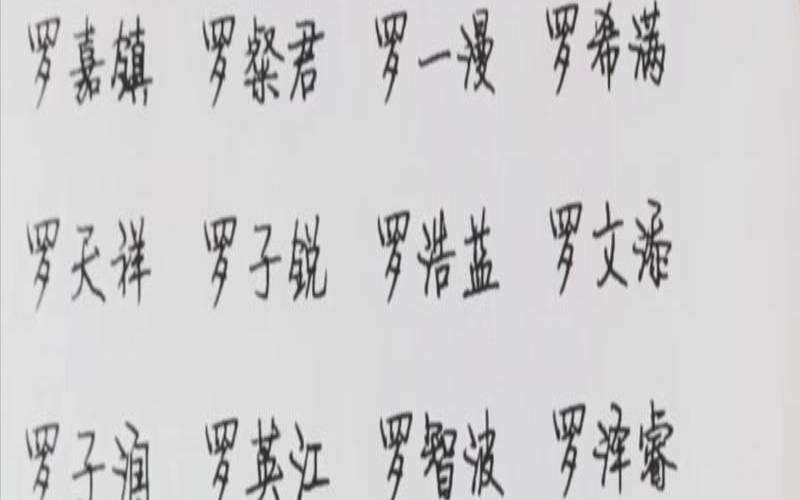 罗嘉镇 罗粲君 罗一漫 罗希满
罗天祥 罗子锐 罗浩益 罗文添
罗子润 罗英江 罗智波 罗泽睿